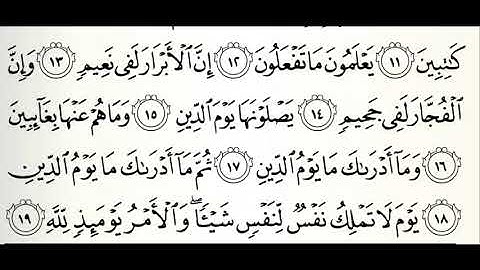 كَٰتِبِينَ ١١ يَعۡلَمُونَ مَا تَفۡعَلُونَ ١٢ إِنَّ ٱلۡأَبۡرَارَ لَفِي نَعِيمٖ ١٣ وَإِنَّ
ٱلۡفُجَّارَ لَفِي جَحِيمٖ ١٤ يَصۡلَوۡنَهَا يَوۡمَ ٱلدِّينِ ١٥ وَمَا هُمۡ عَنۡهَا بِغَآئِبِينَ
١٦ وَمَآ أَدۡرَىٰكَ مَا يَوۡمُ ٱلدِّينِ ١٧ ثُمَّ مَآ أَدۡرَىٰكَ مَا يَوۡمُ ٱلدِّينِ
١٨ يَوۡمَ لَا تَمۡلِكُ نَفۡسٞ لِّنَفۡسٖ شَيۡـٔٗاۖ وَٱلۡأَمۡرُ يَوۡمَئِذٖ لِّلَّهِ ١٩